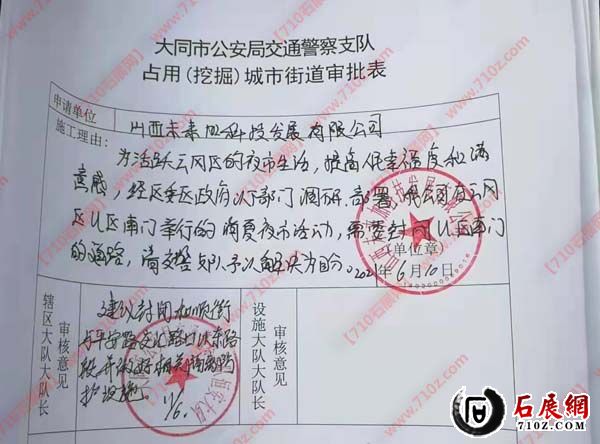 大同市公安局交通警察支队
占用(挖掘)城市街道审批表
申请单位
山西未来加科技发展有限公司
施工理由:
为活跃云冈区的夜市生活，提高任幸福度和满
意感，经区委区政府 部门调研、部署，我公司在云冈
区U区南门举行的消夏夜市活动，需要封闭U区南门
的道路，请交警支队予以解决为盼。
(单位章)
2021年6月10日
辖区大队大队长
审核意见
建议封闭和顺街
与平安路交汇路口以东路
段并做好相关 防
护设施。
11/6.
设施大队大队长
审核意见
【710石展网】www.710z.com
石展網
710Z.COM